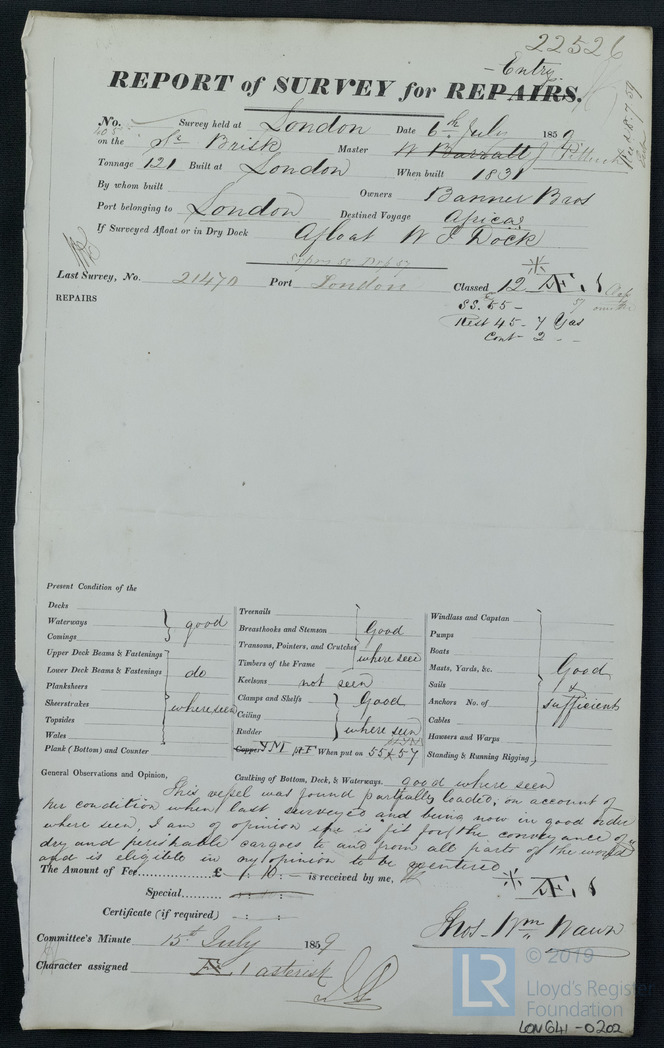 22526
Entry
REPORT of SURVEY for REPAIRS.
No. Survey held at London Date 6th July 1859
on the Sr Brisk Master W Barratt J
Tonnage 121 Built at London When built 1831
By whom built Owners Banner Bros
Port belonging to London Destined Voyage Africa
If Surveyed Afloat or in Dry Dock Afloat W I Dock
Last Survey, No. 21470 Port London Classed 12 Æ 1
SS. 55 - 57
REPAIRS
Rest 45 - 7 Yrs
Cont - 2 - -
Present Condition of the
Decks
Waterways good
Comings
Upper Deck Beams & Fastenings
Lower Deck Beams & Fastenings do
Planksheers
Sheerstrakes where seen
Topsides
Wales
Plank (Bottom) and Counter
Treenails
Breasthooks and Stemson Good
Transoms, Pointers, and Crutches
Timbers of the Frame where seen
Keelsons not seen
Clamps and Shelfs Good
Ceiling
Rudder where seen
Copper YM When put on 55 & 57
Windlass and Capstan
Pumps
Boats
Masts, Yards, &c. Good
Sails &
Anchors No. of sufficient
Cables
Hawsers and Warps
Standing & Running Rigging
Caulking of Bottom, Deck, & Waterways. good where seen
General Observations and Opinion,
This vessel was found partially loaded, on account of
her condition when last surveyed and being now in good order
where seen, I am of opinion she is fit for the conveyance of
dry and perishable cargoes to and from all parts of the world
and is eligible in my opinion to be reentered
The Amount of Fee £ - 10 : - is received by me,
Æ 1
Special
Certificate (if required)
Thos. Wm Wawn
Committee's Minute 15th July 1859
Character assigned Æ 1 asterisk
© 2019
LR
Lloyd's Register
Foundation
LON641-0202